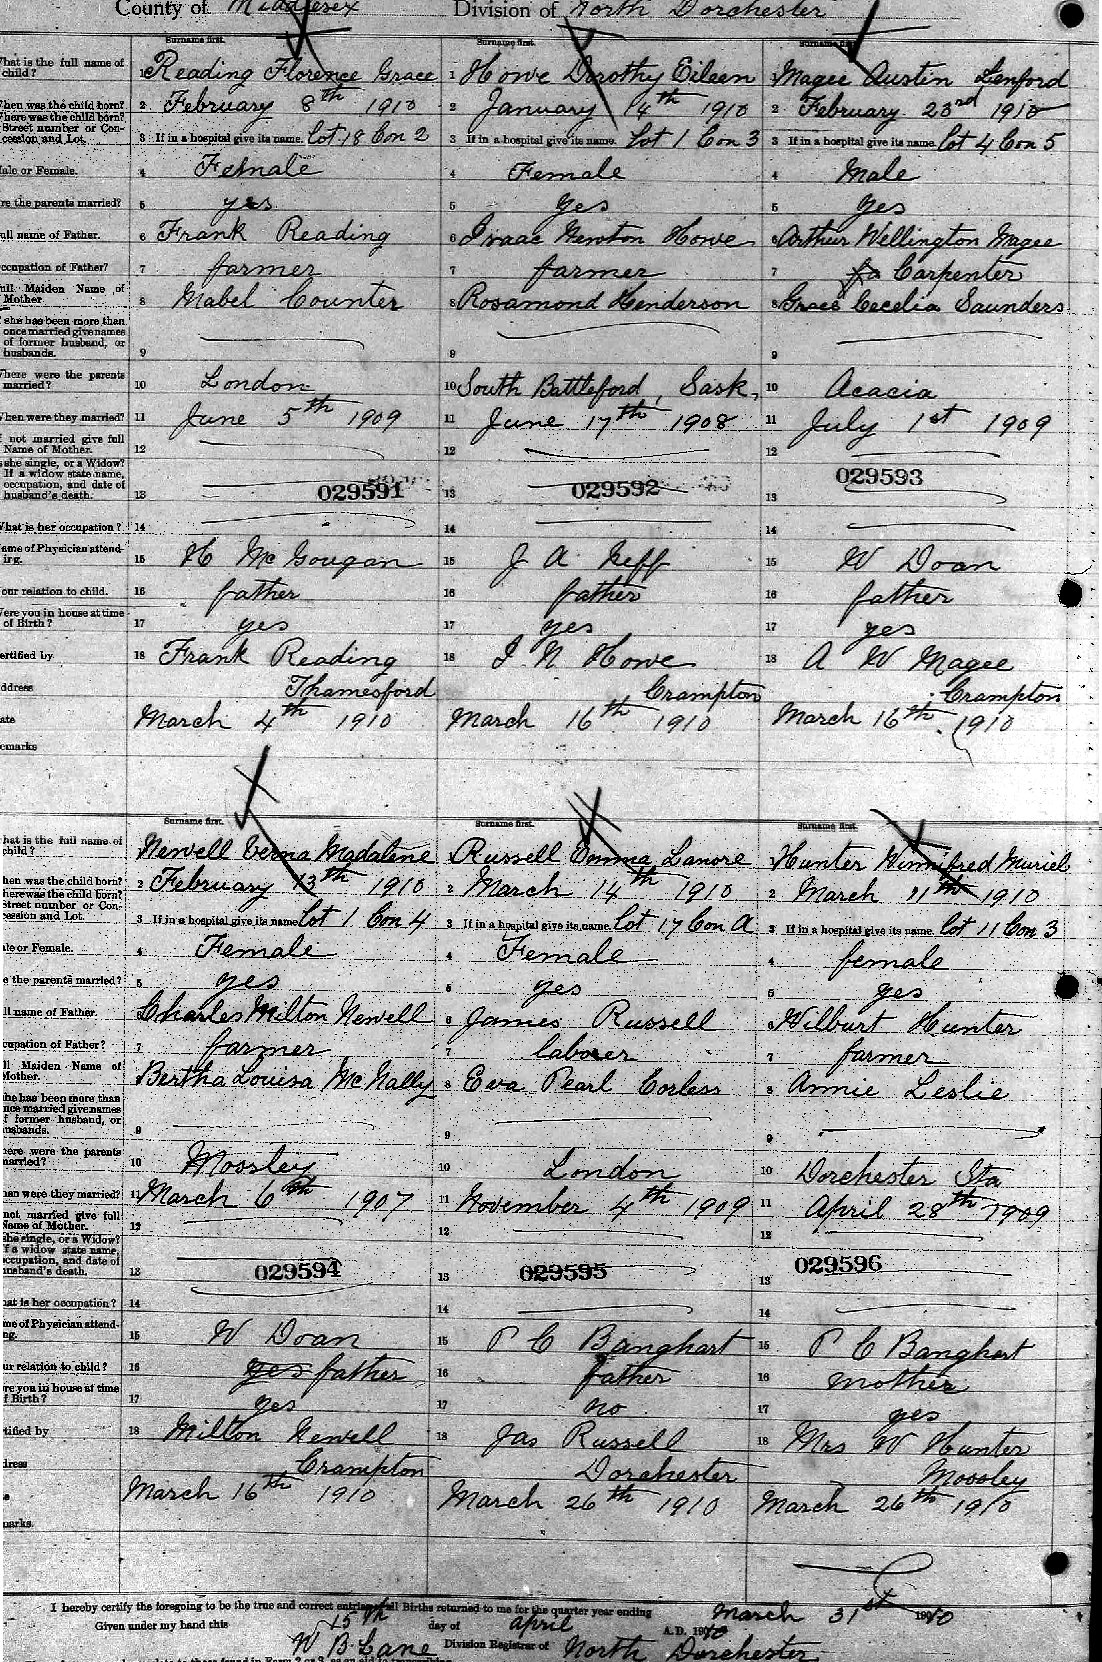 County of Middlesex Division of North Dorchester
Surname first. Surname first. Surname first.
What is the full name of child? 1 Reading Florence Grace 1 Howe Dorothy Eileen Magee Austin Lenford
When was the child born? 2 February 8th 1910 2 January 14th 1910 2 February 23rd 1910
Where was the child born? Street number or Concession and Lot. 3 If in a hospital give its name. Lot 18 Con 2 3 If in a hospital give its name. Lot 1 Con 3 3 If in a hospital give its name. Lot 4 Con 5
Male or Female. 4 Female 4 Female 4 Male
re the parents married? 5 yes 5 yes 5 yes
ull name of Father. 6 Frank Reading 6 Isaac Newton Howe 6 Arthur Wellington Magee
ccupation of Father? 7 farmer 7 farmer 7 fa Carpenter
ull Maiden Name of Mother 8 Mabel Counter 8 Rosamond Henderson 8 Grace Cecelia Saunders
she has been more than once married give names of former husband, or husbands. 9 9 9
Where were the parents married? 10 London 10 South Battleford, Sask, 10 Acacia
When were they married? 11 June 5th 1909 11 June 17th 1908 11 July 1st 1909
not married give full Name of Mother. 12 12 12
she single, or a Widow? If a widow state name, occupation, and date of husband's death. 13 029591 13 029592 13 029593
What is her occupation? 14 14 14
ame of Physician attending. 15 H McGougan 15 J A Neff 15 W Doan
our relation to child. 16 father 16 father 16 father
Were you in house at time of Birth? 17 yes 17 yes 17 yes
ertified by 18 Frank Reading 18 I N Howe 18 A W Magee
ddress Thamesford Crampton Crampton
ate March 4th 1910 March 16th 1910 March 16th 1910
emarks
Surname first. Surname first. Surname first.
hat is the full name of child? Newell Verna Madalene Russell Emma Lanore Hunter Winnifred Muriel
hen was the child born? 2 February 13th 1910 2 March 14th 1910 2 March 11th 1910
here was the child born? Street number or Concession and Lot. 3 If in a hospital give its name Lot 1 Con 4 3 If in a hospital give its name. Lot 17 Con A 3 If in a hospital give its name. Lot 11 Con 3
le or Female. 4 Female 4 Female 4 female
e the parents married? 5 yes 5 yes 5 yes
ll name of Father. 6 Charles Milton Newell 6 James Russell 6 Wilburt Hunter
cupation of Father? 7 farmer 7 laborer 7 farmer
ll Maiden Name of Mother. Bertha Louisa McNally 8 Eva Pearl Corless 8 Annie Leslie
he has been more than once married give names f former husband, or usbands. 9 9 9
ere were the parents married? 10 Mossley 10 London 10 Dorchester Sta
hen were they married? 11 March 6th 1907 11 November 4th 1909 11 April 28th 1909
not married give full Name of Mother. 12 12 12
she single, or a Widow? f a widow state name, occupation, and date of husband's death. 13 029594 13 029595 13 029596
hat is her occupation? 14 14 14
me of Physician attending. 15 W Doan 15 P C Banghart 15 P C Banghart
ur relation to child? 16 yes father 16 father 16 mother
re you in house at time f Birth? 17 yes 17 no 17 yes
tified by 18 Milton Newell 18 Jas Russell 18 Mrs W Hunter
dress Crampton Dorchester Mossley
March 16th 1910 March 26th 1910 March 26th 1910
marks.
I hereby certify the foregoing to be the true and correct entries of all Births returned to me for the quarter year ending March 31st 1910
Given under my hand this 15th day of April A.D. 1910
W B Lane Division Registrar of North Dorchester